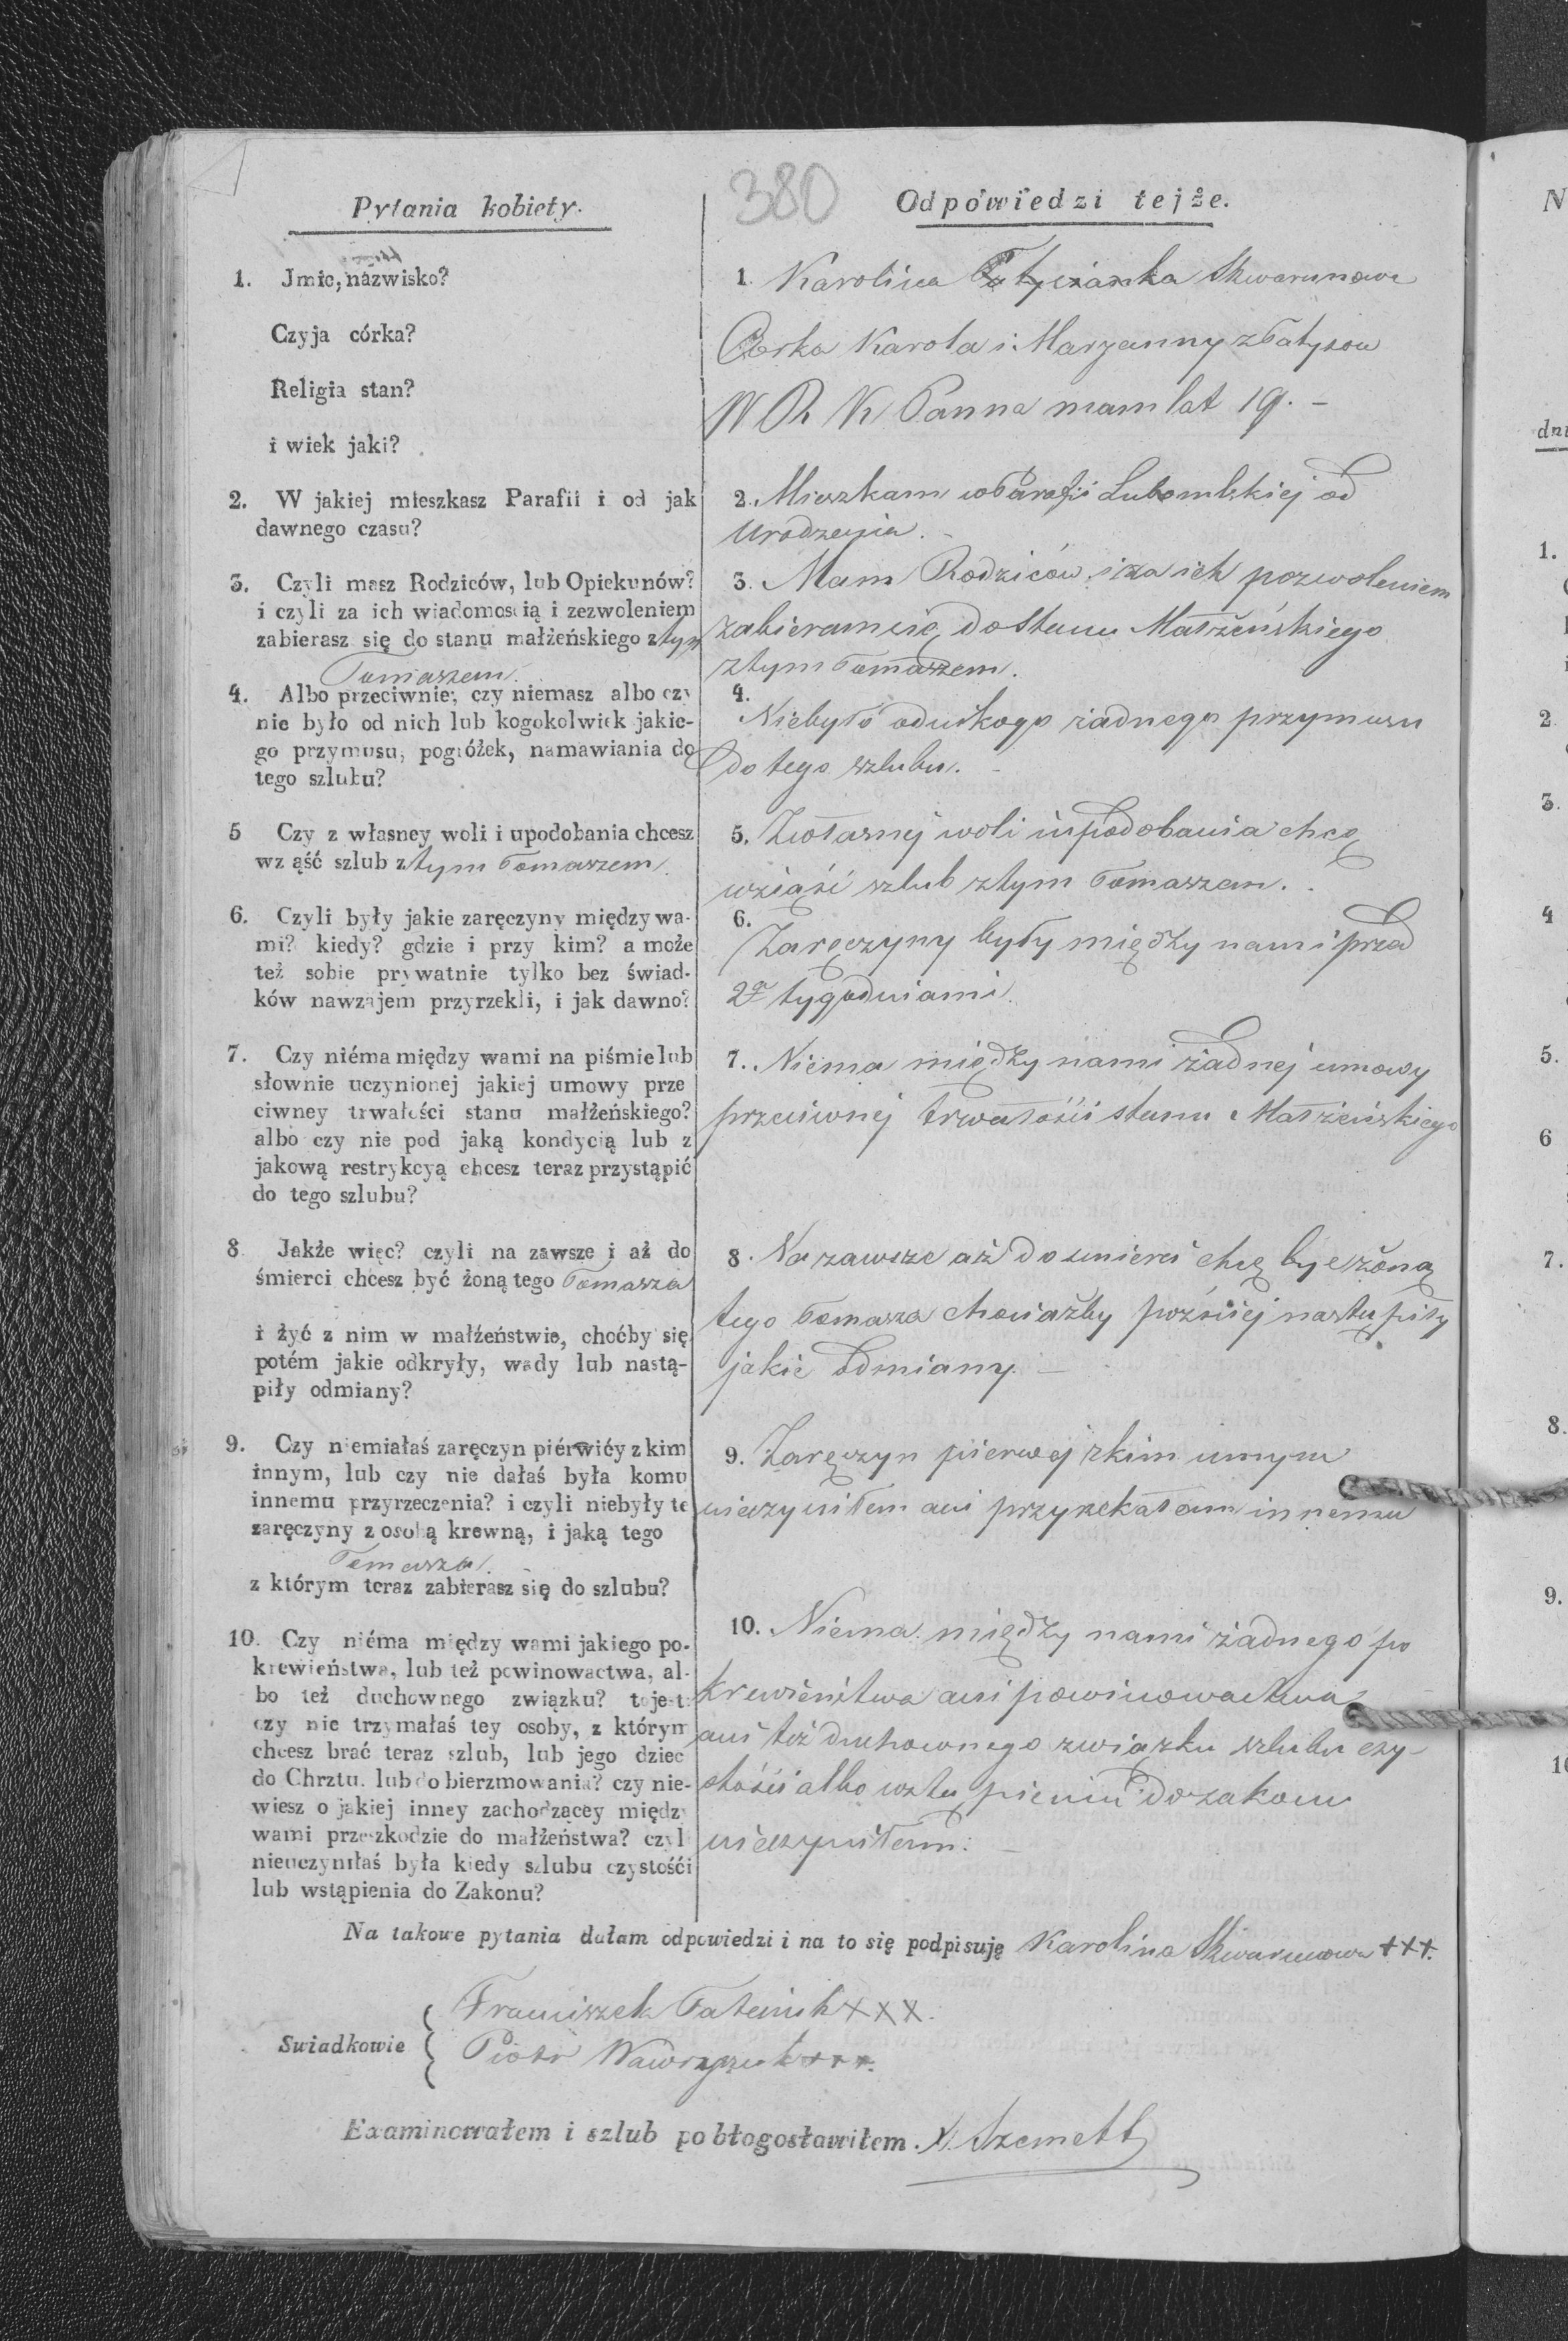 380
Pytania kobiety.
1. Jmie, nazwisko?
Czyja córka?
Religia stan?
i wiek jaki?
2. W jakiej mieszkasz Parafii i od jak
dawnego czasu?
3. Czyli masz Rodziców, lub Opiekunów?
i czyli za ich wiadomością i zezwoleniem
zabierasz się do stanu małżeńskiego z tym
Tomaszem.
4. Albo przeciwnie, czy niemasz albo czy
nie było od nich lub kogokolwiek jakie-
go przymusu, pogróżek, namawiania do
tego szlubu?
5 Czy z własney woli i upodobania chcesz
wziąść szlub z tym Tomaszem.
6. Czyli były jakie zaręczyny między wa-
mi? kiedy? gdzie i przy kim? a może
też sobie prywatnie tylko bez świad-
ków nawzajem przyrzekli, i jak dawno?
7. Czy niéma między wami na piśmie lub
słownie uczynionej jakiej umowy prze
ciwney trwałości stanu małżeńskiego?
albo czy nie pod jaką kondycią lub z
jakową restrykcyą chcesz teraz przystąpić
do tego szlubu?
8 Jakże więc? czyli na zawsze i aż do
śmierci chcesz być żoną tego Tomasza
i żyć z nim w małżeństwie, choćby się
potém jakie odkryły, wady lub nastą-
piły odmiany?
9. Czy niemiałaś zaręczyn piérwiéy z kim
innym, lub czy nie dałaś była komu
innemu przyrzeczenia? i czyli niebyły te
zaręczyny z osobą krewną, i jaką tego
Tomasza.
z którym teraz zabierasz się do szlubu?
10. Czy niéma między wami jakiego po-
krewieństwa, lub też powinowactwa, al-
bo też duchownego związku? to jest:
czy nie trzymałaś tey osoby, z którym
chcesz brać teraz szlub, lub jego dziec
do Chrztu, lub do bierzmowania? czy nie-
wiesz o jakiej inney zachodzącey między
wami przeszkodzie do małżeństwa? czyl
nieuczyniłaś była kiedy szlubu czystości
lub wstąpienia do Zakonu?
Odpowiedzi tejże.
1. Karolina Skwarunowa
Córka Karola i Maryanny z
W R K Panna mam lat 19. -
2. Mieszkam w Parafii Lubomlskiej od
Urodzenia. -
3. Mam Rodziców i za ich pozwoleniem
zabieram się do stanu Małżeńskiego
z tym Tomaszem.
4. Niebyło od nikogo żadnego przymusu
do tego szlubu. -
5. Z własnej woli i upodobania chcę
wziąść szlub z tym Tomaszem. -
6. Zaręczyny były między nami przed
2a tygodniami.
7. Niema między nami żadnej umowy
przeciwnej trwałości stanu Małżeńskiego
8. Na zawsze aż do smierci chcę być żoną
tego Tomasza chociażby pozniej nastąpiły
jakie odmiany -
9. Zaręczyn pierwej z kim innym
nieczyniłam ani przyrzekałam innemu
10. Niema między nami żadnego po
krewieństwa ani powinowactwa
ani też duchownego związku szlubu czy-
stości albo wstąpieniu do zakonu
nieczyniłam. -
Na takowe pytania dałam odpowiedzi i na to się podpisuję Karolina Skwarunowa +++.
Swiadkowie
Franciszek XXX.
Piotr +++.
Examinowałem i szlub pobłogosławiłem. X. Szemett
N
dni
1.
2
3.
4
5.
6
7.
8.
9.
10